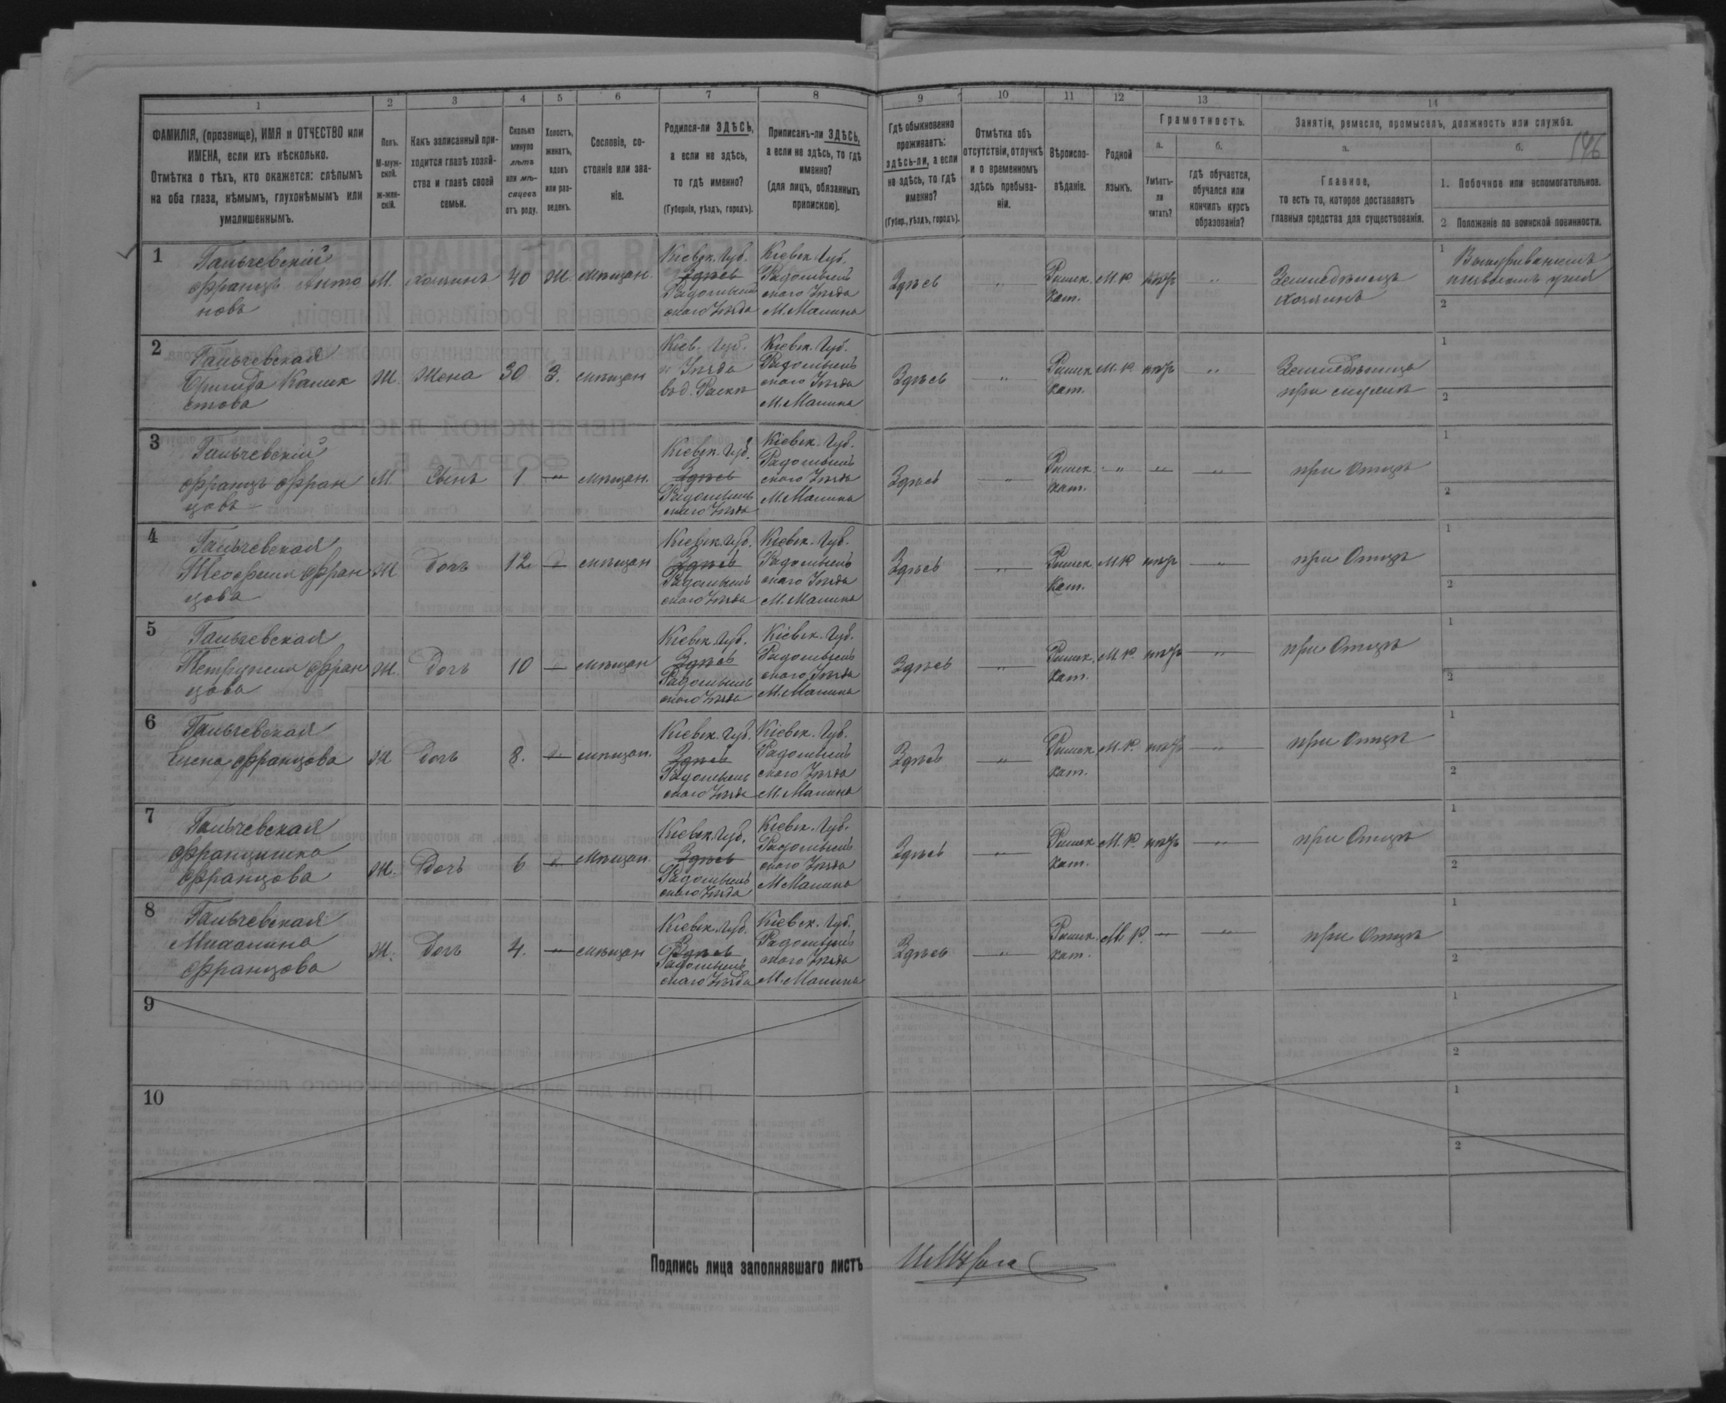 1 2 3 4 5 6 7 8 9 10 11 12 13 14
ФАМИЛІЯ, (прозвище), ИМЯ и ОТЧЕСТВО или
ИМЕНА, если ихъ нѣсколько.
Отмѣтка о тѣхъ, кто окажется: слѣпымъ
на оба глаза, нѣмымъ, глухонѣмымъ или
умалишеннымъ.
Полъ.
М-муж-
ской.
Ж-жен-
скій.
Какъ записанный при-
ходится главѣ хозяй-
ства и главѣ своей
семьи.
Сколько
минуло
лѣтъ
или мѣ-
сяцевъ
отъ роду.
Холостъ,
женатъ,
вдовъ
или раз-
веденъ.
Сословіе, со-
стояніе или зва-
ніе.
Родился-ли ЗДѢСЬ,
а если не здѣсь,
то гдѣ именно?
(Губернія, уѣздъ, городъ).
Приписанъ-ли ЗДѢСЬ,
а если не здѣсь, то гдѣ
именно?
(для лицъ, обязанныхъ
припискою).
Гдѣ обыкновенно
проживаетъ:
здѣсь-ли, а если
не здѣсь, то гдѣ
именно?
(Губер., уѣздъ, городъ).
Отмѣтка объ
отсутствіи, отлучкѣ
и о временномъ
здѣсь пребыва-
ніи.
Вѣроиспо-
вѣданіе.
Родной
языкъ.
Грамотность.
а.
Умѣетъ-
ли
читать?
б.
гдѣ обучается,
обучался или
кончилъ курсъ
образованія?
Занятіе, ремесло, промыселъ, должность или служба.
146
а.
Главное,
то есть то, которое доставляетъ
главныя средства для существованія.
б.
1. Побочное или вспомогательное.
2. Положеніе по воинской повинности.
1
Гальчевскій
Францъ Анто
новъ
М. хозяинъ 40 Ж. мѣщан.
Кіевск. Губ.
Здѣсь
Радомысль
скаго Уѣзда
Кіевск. Губ.
Радомысль
скаго Уѣзда
М. Малина
Здѣсь „
Римск.
Кат.
М. Р.
Земледѣлецъ
хозяинъ
1
2
2
Гальчевская
Ж. Жена 30 З. мѣщан
Кіев. Губ.
и Уѣзда
Кіевск. Губ.
Радомысль
скаго Уѣзда
М. Малина
Здѣсь „
Римск.
кат.
М. Р.
при мужѣ
1
2
3
Гальчевскій
Францъ Фран
цовъ
М Сынъ 1 „ мѣщан.
Кіевск. Губ.
Здѣсь
Радомысль
скаго Уѣзда
Кіевск. Губ.
Радомысль
скаго Уѣзда
М. Малина
Здѣсь „
Римск.
кат.
„ „ „
при Отцѣ
1
2
4
Гальчевская
Теофила Фран
цова
Ж Дочь 12 „ мѣщан
Кіевск. Губ.
Здѣсь
Радомысль
скаго Уѣзда
Кіевск. Губ.
Радомысль
скаго Уѣзда
М. Малина
Здѣсь „
Римск.
Кат.
М. Р.
при Отцѣ
1
2
5
Гальчевская
Петрунела Фран
цова
Ж. Дочь 10 „ мѣщан
Кіевск. Губ.
Здѣсь
Радомысль
скаго Уѣзда
Кіевск. Губ.
Радомысль
скаго Уѣзда
М. Малина
Здѣсь „
Римск.
кат.
М. Р.
при Отцѣ
1
2
6
Гальчевская
Елена Францова
Ж Дочь 8. „ мѣщан.
Кіевск. Губ.
Здѣсь
Радомысль
скаго Уѣзда
Кіевск. Губ.
Радомысль
скаго Уѣзда
М. Малина
Здѣсь „
Римск.
кат.
М. Р.
при Отцѣ
1
2
7
Гальчевская
Францишка
Францова
Ж. Дочь 6 „ Мѣщан.
Кіевск. Губ.
Здѣсь
Радомысль
скаго Уѣзда
Кіевск. Губ.
Радомысль
скаго Уѣзда
М. Малина
Здѣсь „
Римск.
кат.
М. Р.
при Отцѣ
1
2
8
Гальчевская
Михалина
Францова
Ж. Дочь 4. „ мѣщан
Кіевск. Губ.
Здѣсь
Радомысль
скаго Уѣзда
Кіевск. Губ.
Радомысль
скаго Уѣзда
М. Малина
Здѣсь „
Римск.
кат.
М. Р. „ „
при Отцѣ
1
2
9
1
2
10
1
2
Подпись лица заполнявшаго листъ